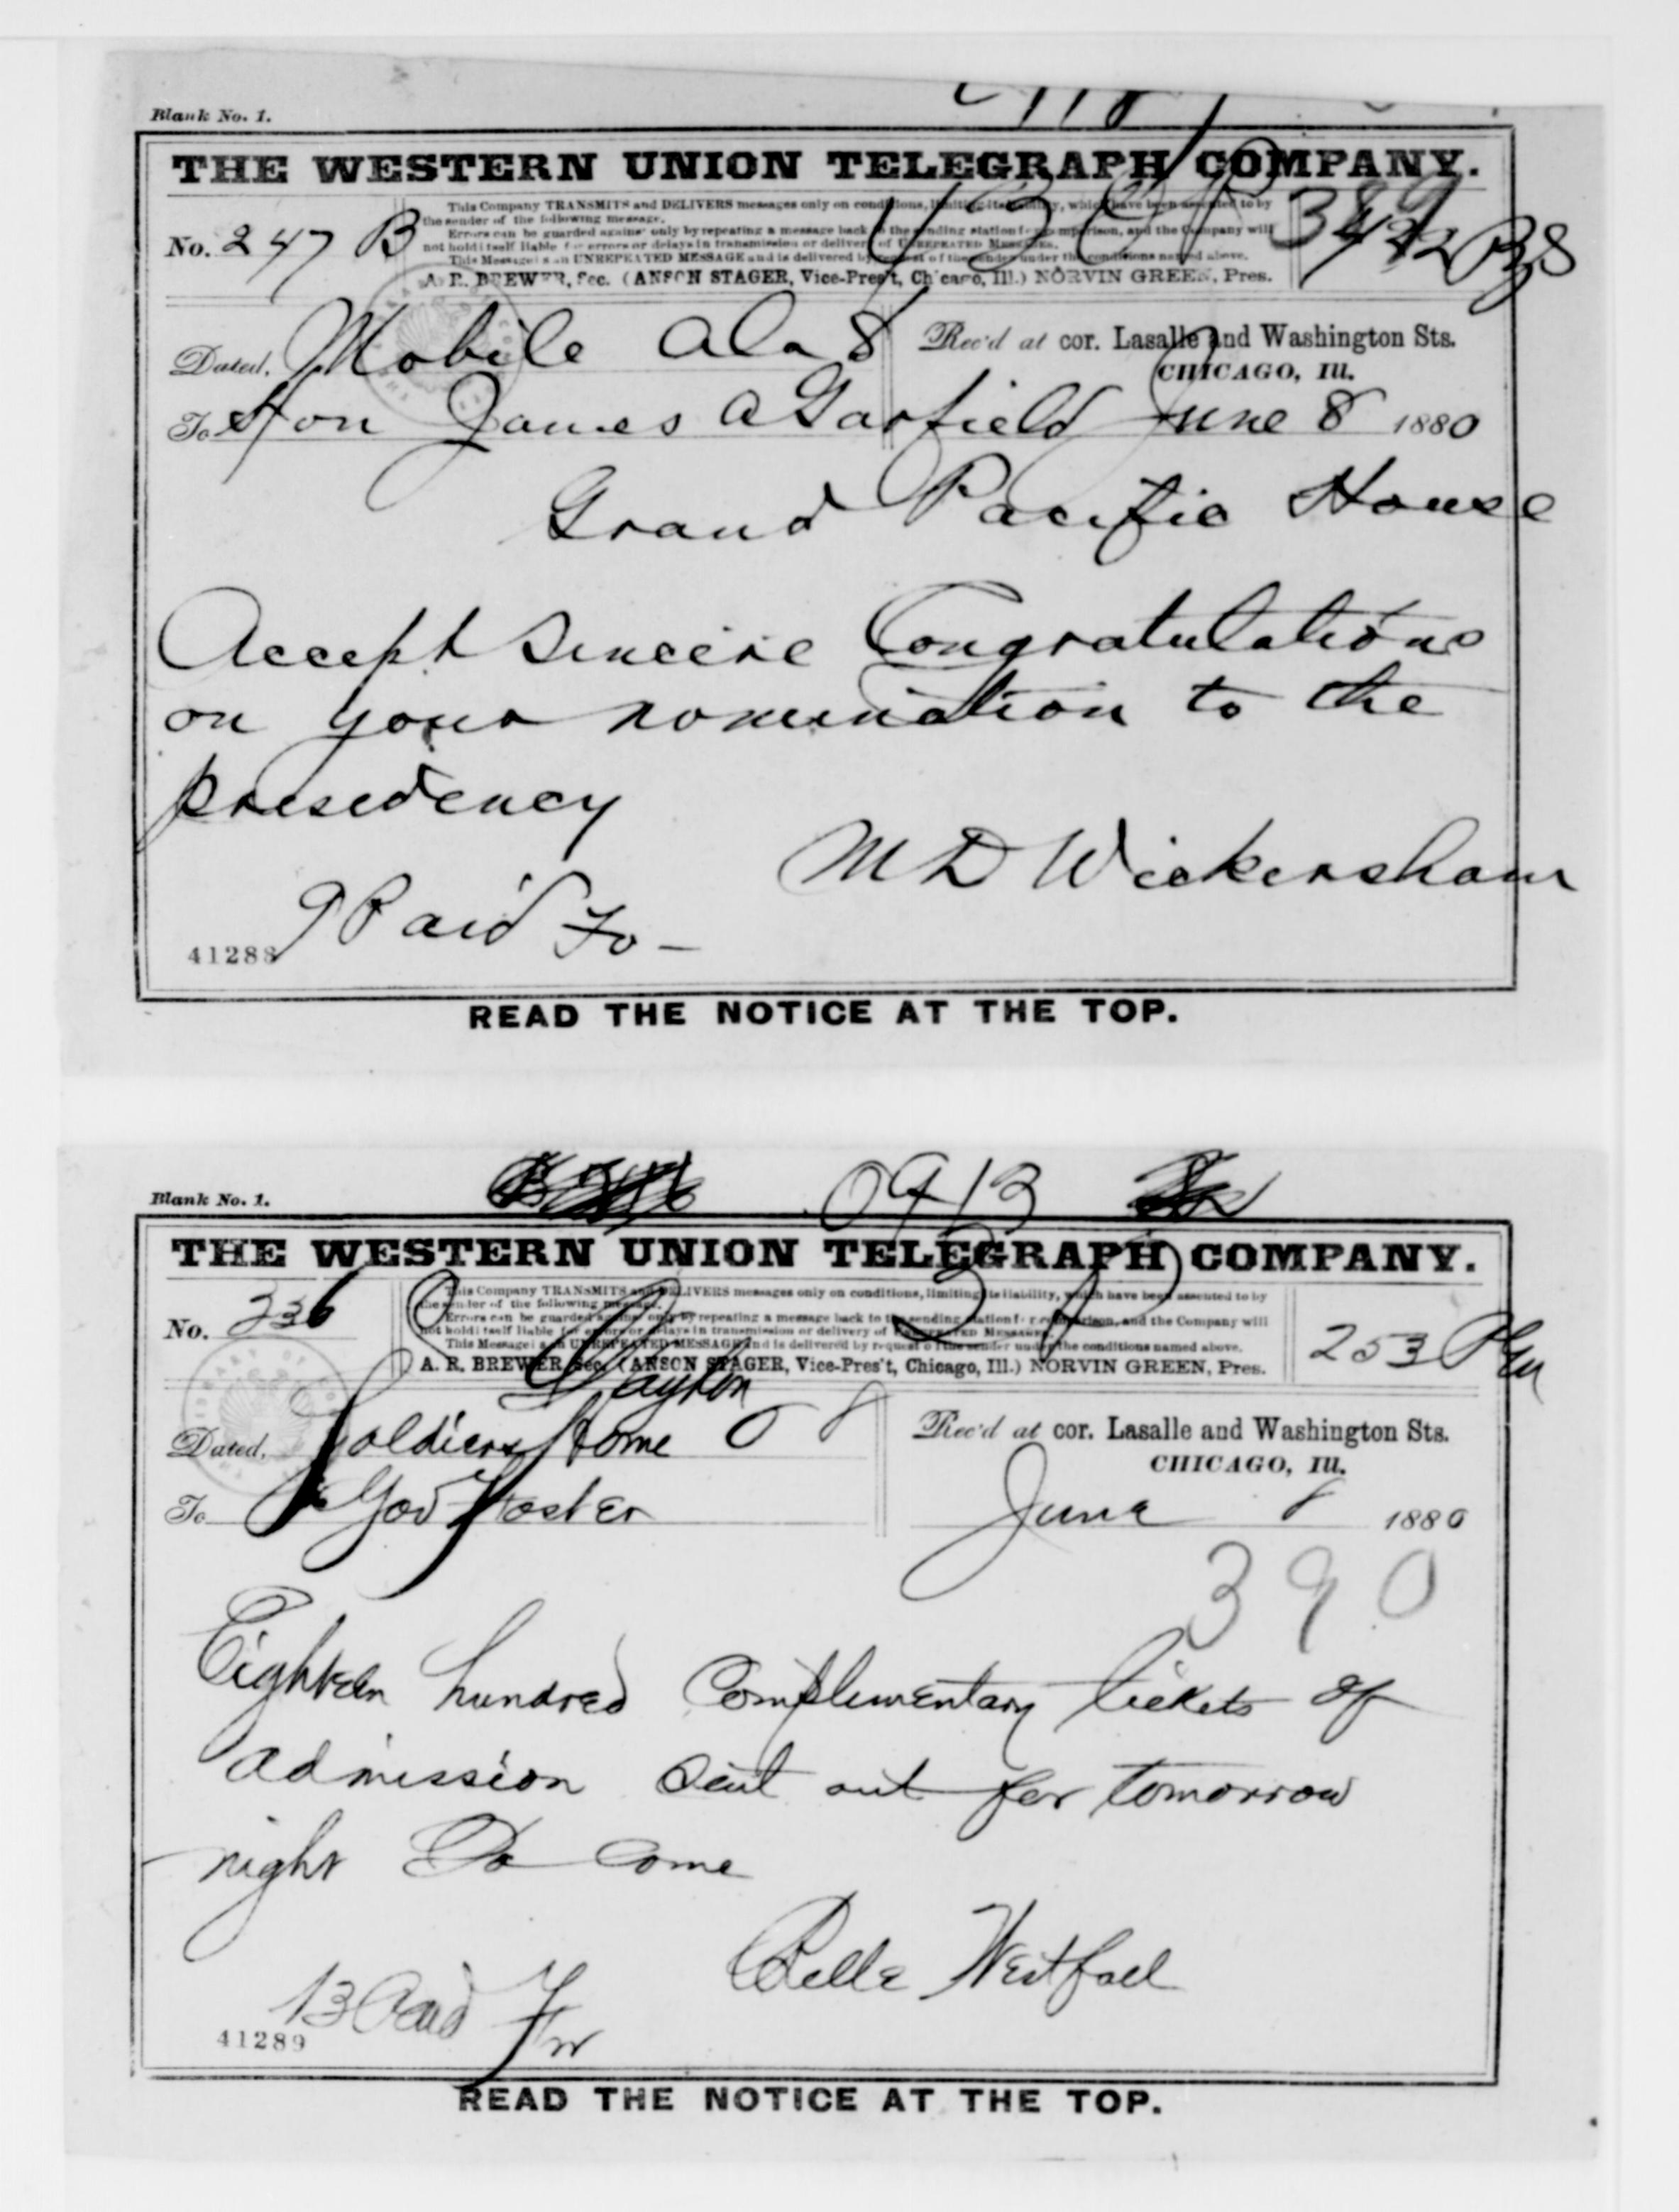 Blank No. 1.
THE WESTERN UNION TELEGRAPH COMPANY.
No. 247 B
This Company TRANSMITS and DELIVERS messages only on conditions, limiting its liability, which have been assented to by
the sender of the following message.
Errors can be guarded against only by repeating a message back to the sending station for comparison, and the Company will
not hold itself liable for errors or delays in transmission or delivery of UNREPEATED MESSAGES.
This Message is an UNREPEATED MESSAGE and is delivered by request of the sender under the conditions named above.
A. R. BREWER, Sec. (ANSON STAGER, Vice-Pres't, Chicago, Ill.) NORVIN GREEN, Pres.
389
Dated, Mobile Ala 8
Rec'd at cor. Lasalle and Washington Sts.
CHICAGO, Ill.
To Hon James A Garfield June 8 1880
Grand Pacific House
Accept Sincere Congratulations
on your nomination to the
presidency
M D Wickersham
9 Paid
41288
READ THE NOTICE AT THE TOP.
Blank No. 1.
0913
THE WESTERN UNION TELEGRAPH COMPANY.
No. 236
This Company TRANSMITS and DELIVERS messages only on conditions, limiting its liability, which have been assented to by
the sender of the following message.
Errors can be guarded against only by repeating a message back to the sending station for comparison, and the Company will
not hold itself liable for errors or delays in transmission or delivery of UNREPEATED MESSAGES.
This Message is an UNREPEATED MESSAGE and is delivered by request of the sender under the conditions named above.
A. R. BREWER, Sec. (ANSON STAGER, Vice-Pres't, Chicago, Ill.) NORVIN GREEN, Pres.
253
Dayton
Dated, Soldiers Home O 8
Rec'd at cor. Lasalle and Washington Sts.
CHICAGO, Ill.
To Gov Foster
June 8 1880
390
Eighteen hundred Complimentary tickets of
admission sent out for tomorrow
night Do Come
Belle Westfall
13 Paid
41289
READ THE NOTICE AT THE TOP.